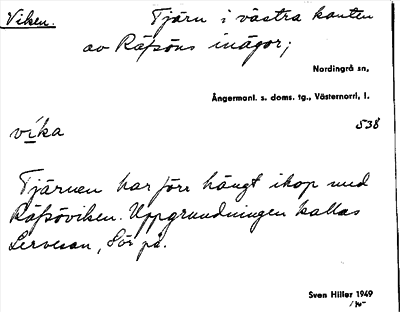 Viken. Tjärn i västra kanten
av Räfsöns inägor;
Nordingrå sn,
Ångermanl. s. doms. tg., Västernorrl. l.
vika 538
Tjärnen har förr hängt ihop med
Räfsöviken. Uppgrundningen kallas
på.
Sven Hiller 1949